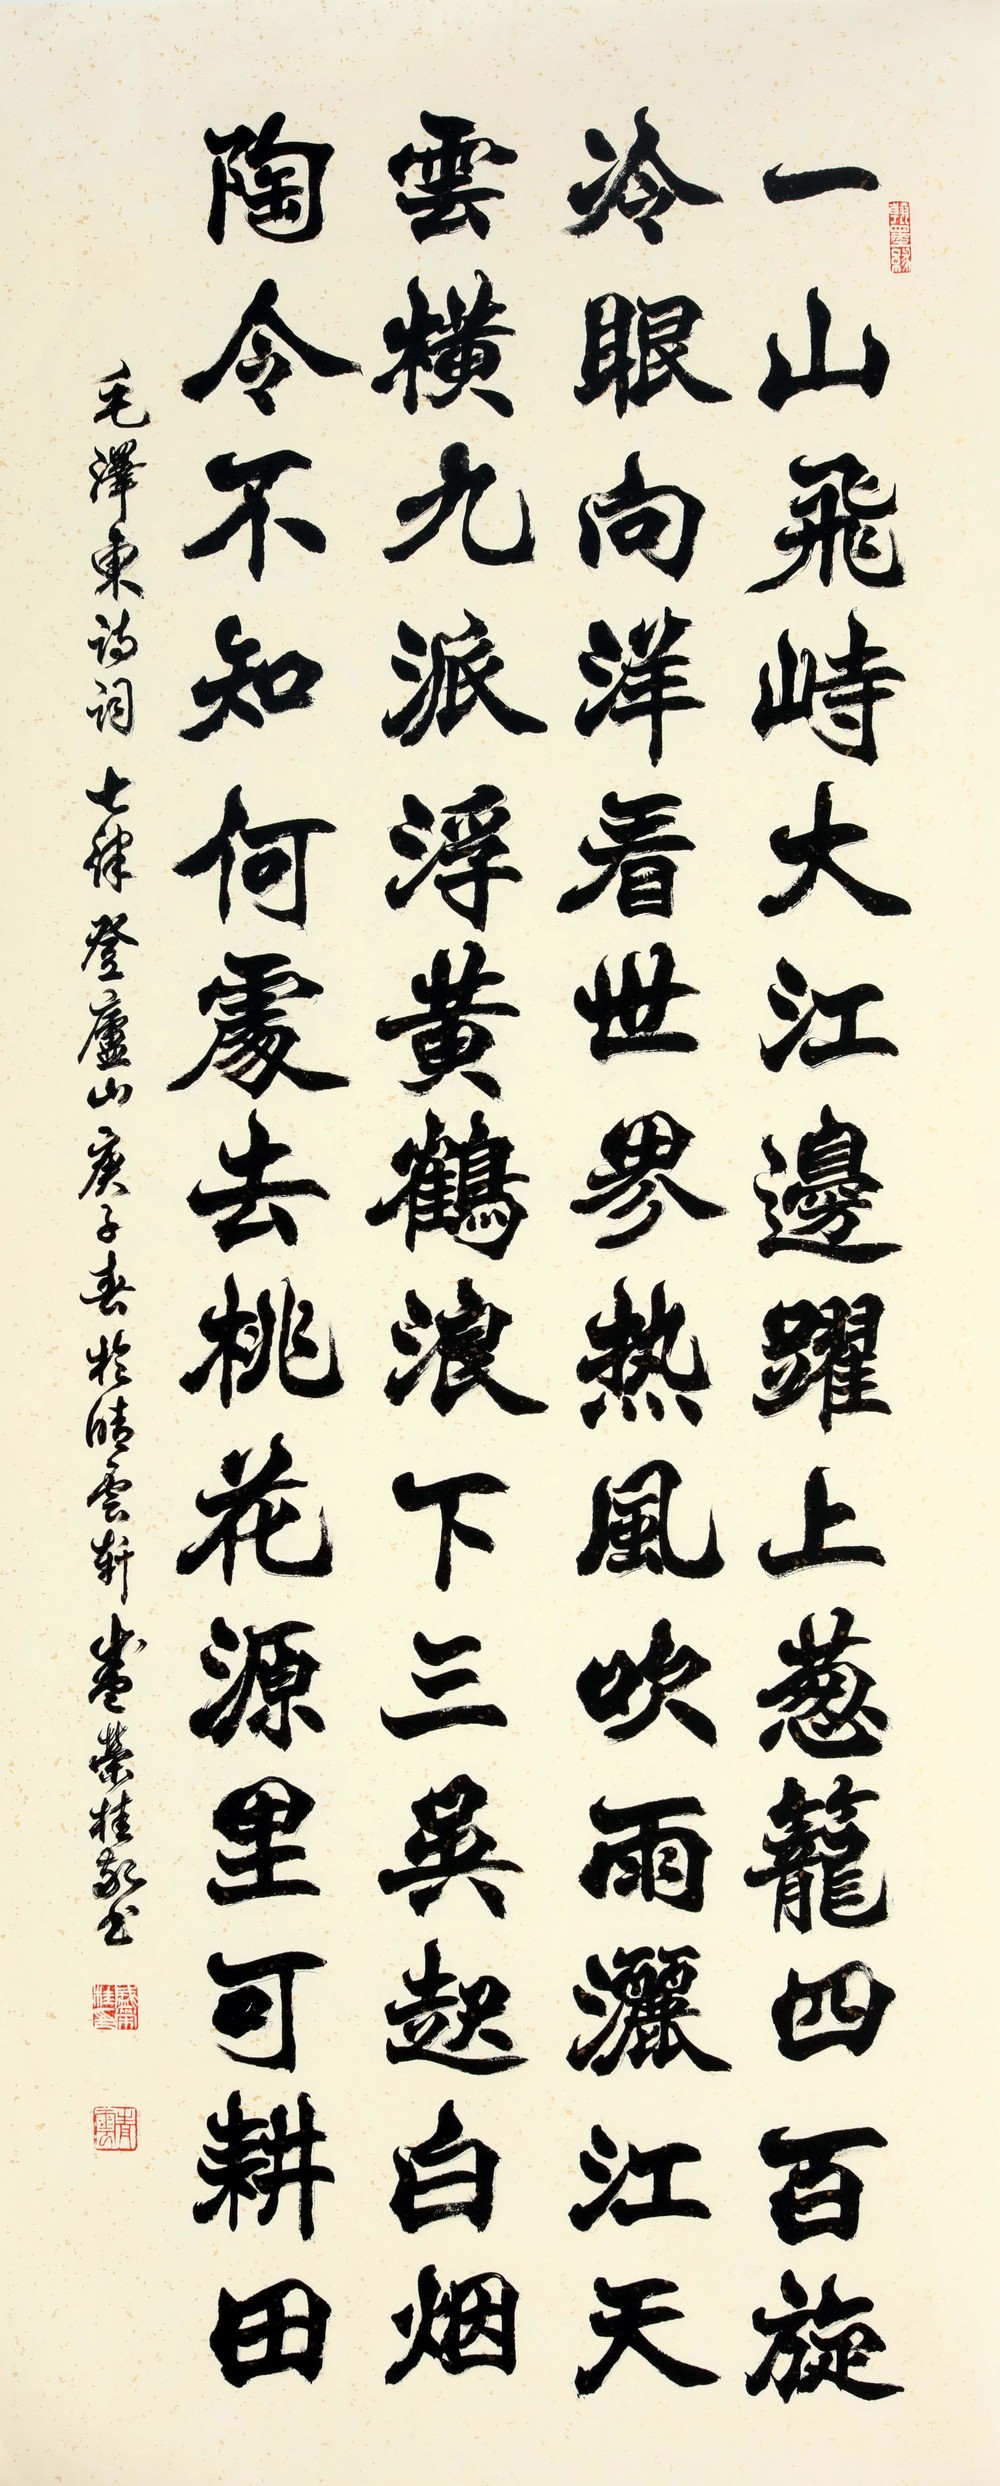 一山飛峙大江邊躍上葱籠四百旋
冷眼向洋看世界热風吹雨灑江天
雲橫九派浮黄鶴浪下三吳起白烟
陶令不知何處去桃花源里可耕田
毛澤東詩詞七律登廬山庚子春於晴雲軒盛榮桂敬书